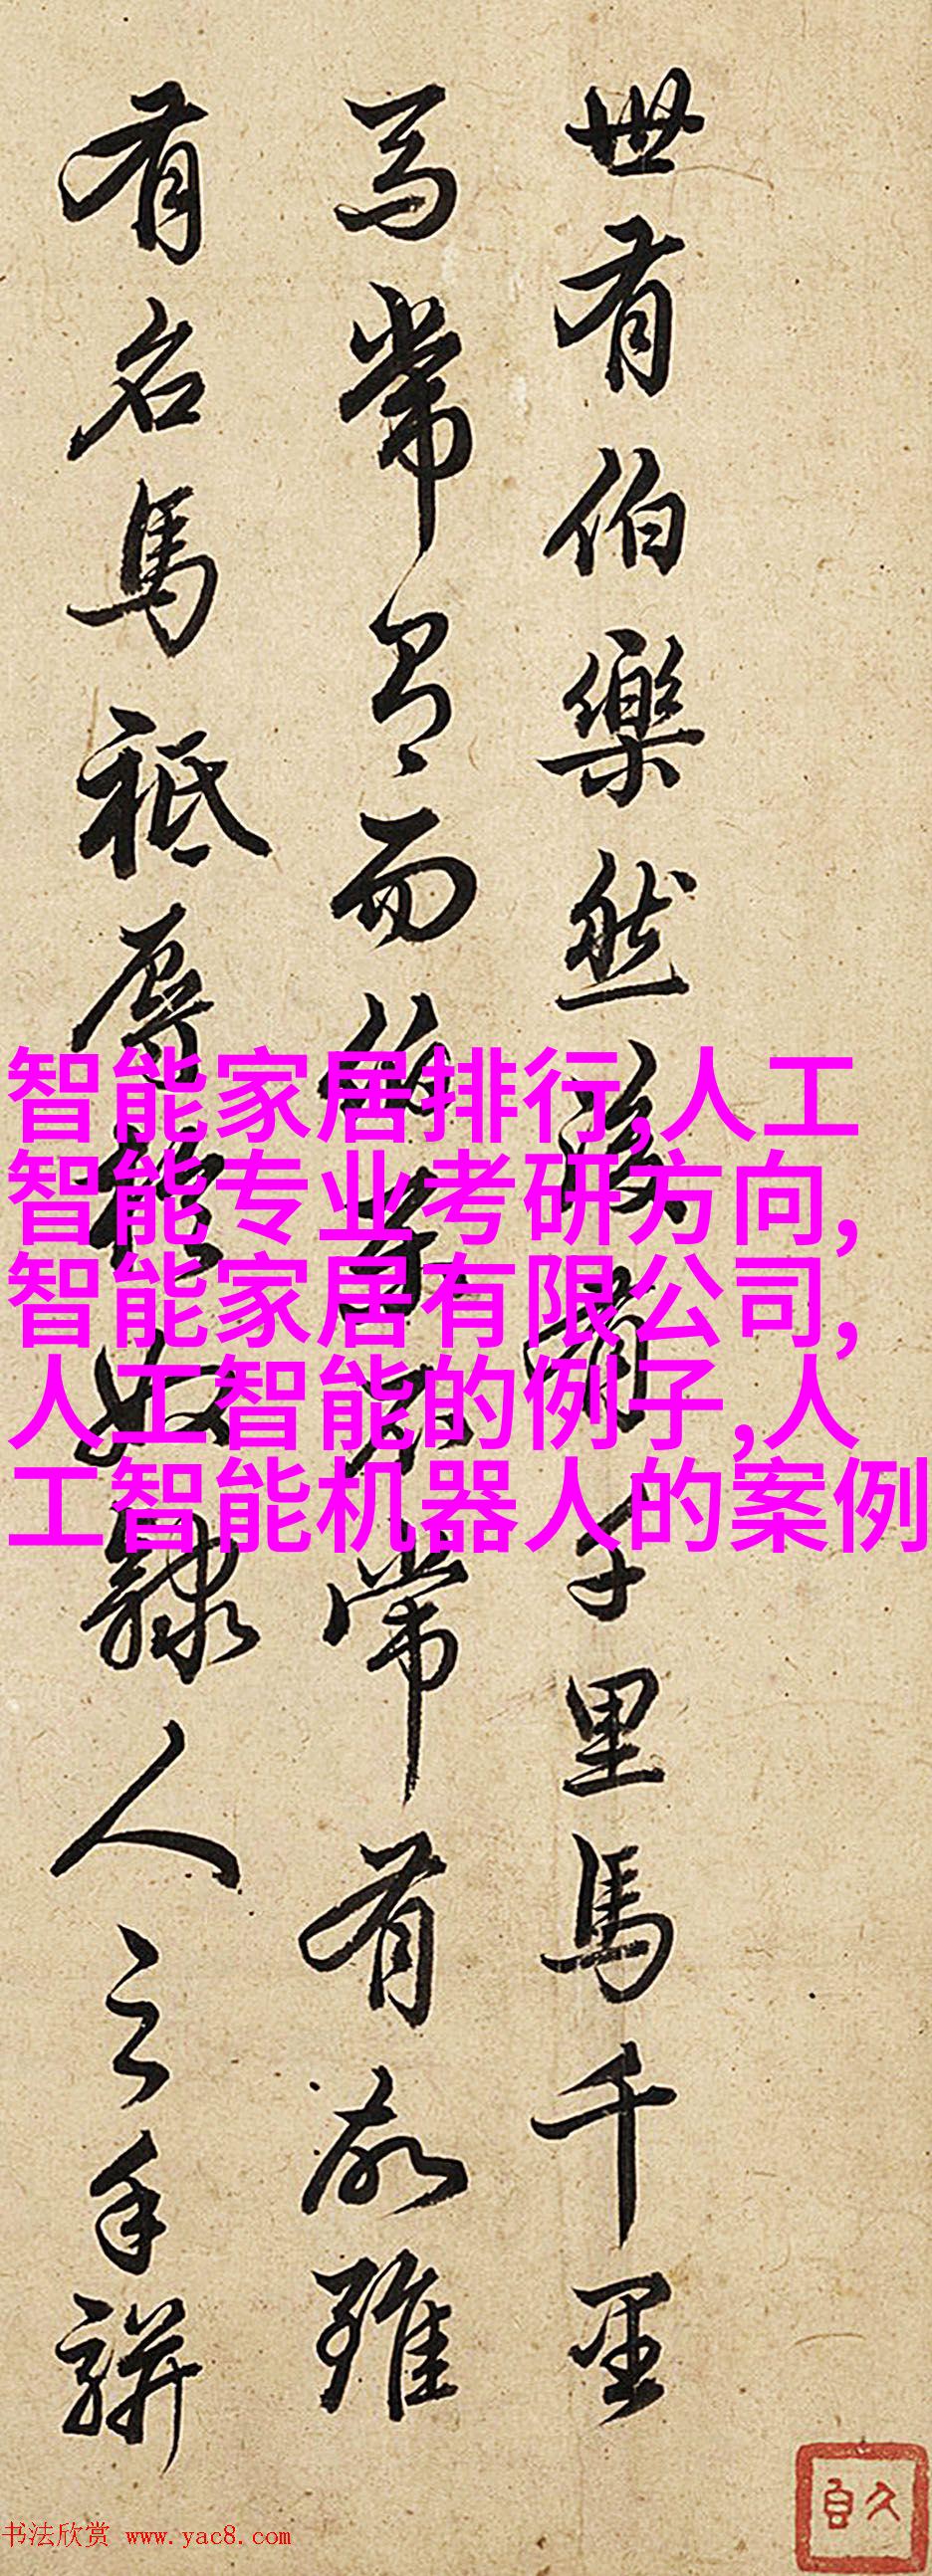 世有伯樂然後有千里馬千里
馬常有而伯樂不常有故雖
有名馬祗辱於奴隸人之手駢
智能家居排行,人工
智能专业考研方向,
智能家居有限公司,
人工智能的例子,人
工智能机器人的案例
书法欣赏 www.yac8.com